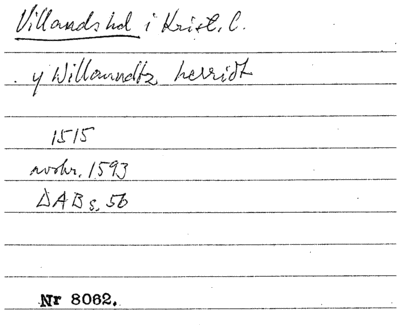 Villands hd i Krist. l.
y Willanndtz herridt
1515
avskr. 1593
DAB s. 56
Nr 8062.